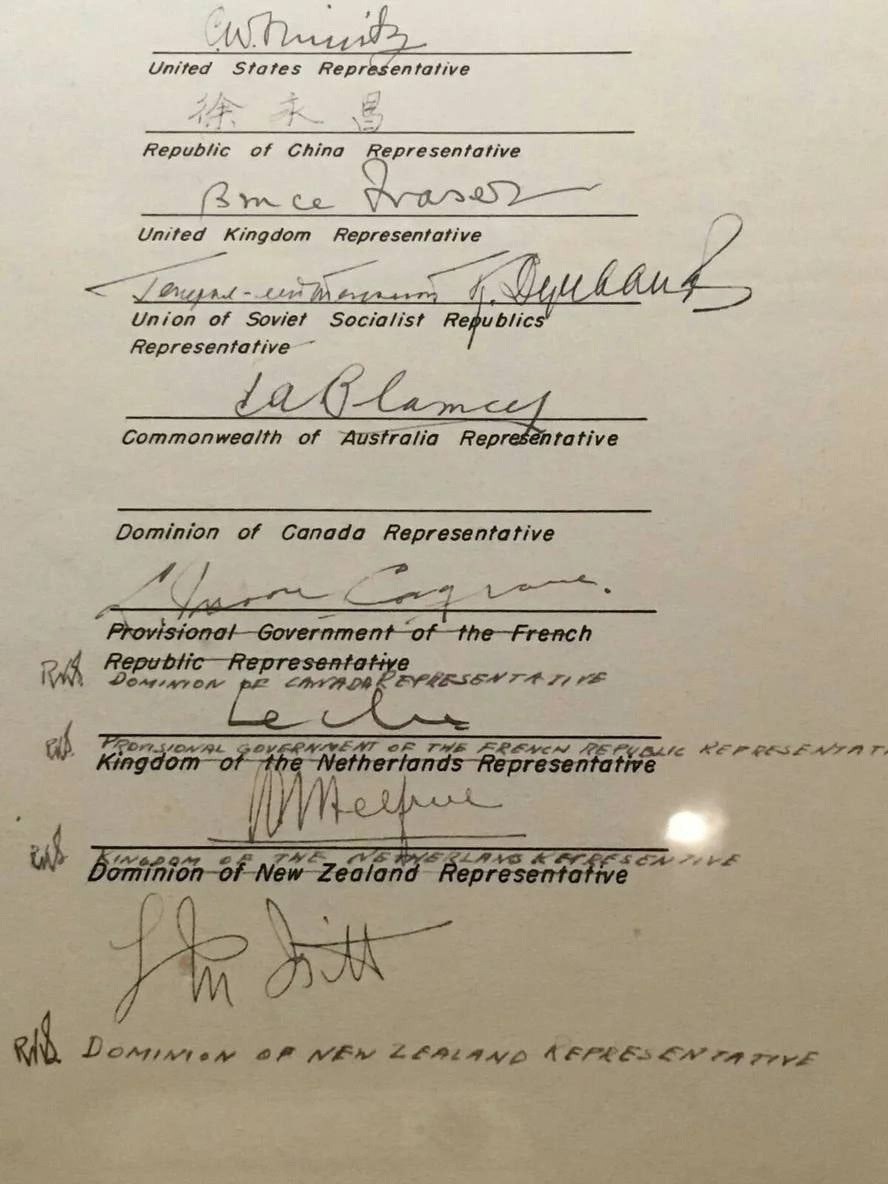 C.W. Nimitz
United States Representative
徐永昌
Republic of China Representative
Bruce Fraser
United Kingdom Representative
Генерал-лейтенант К. Деревянко
Union of Soviet Socialist Republics
Representative
T A Blamey
Commonwealth of Australia Representative
Dominion of Canada Representative
L. Moore Cosgrave.
Provisional Government of the French
Republic Representative
RKS DOMINION OF CANADA REPRESENTATIVE
Le Clerc
RKS PROVISIONAL GOVERNMENT OF THE FRENCH REPUBLIC REPRESENTATI
Kingdom of the Netherlands Representative
Helfrich
RKS KINGDOM OF THE NETHERLANDS REPRESENTATIVE
Dominion of New Zealand Representative
L M Isitt
RKS DOMINION OF NEW ZEALAND REPRESENTATIVE